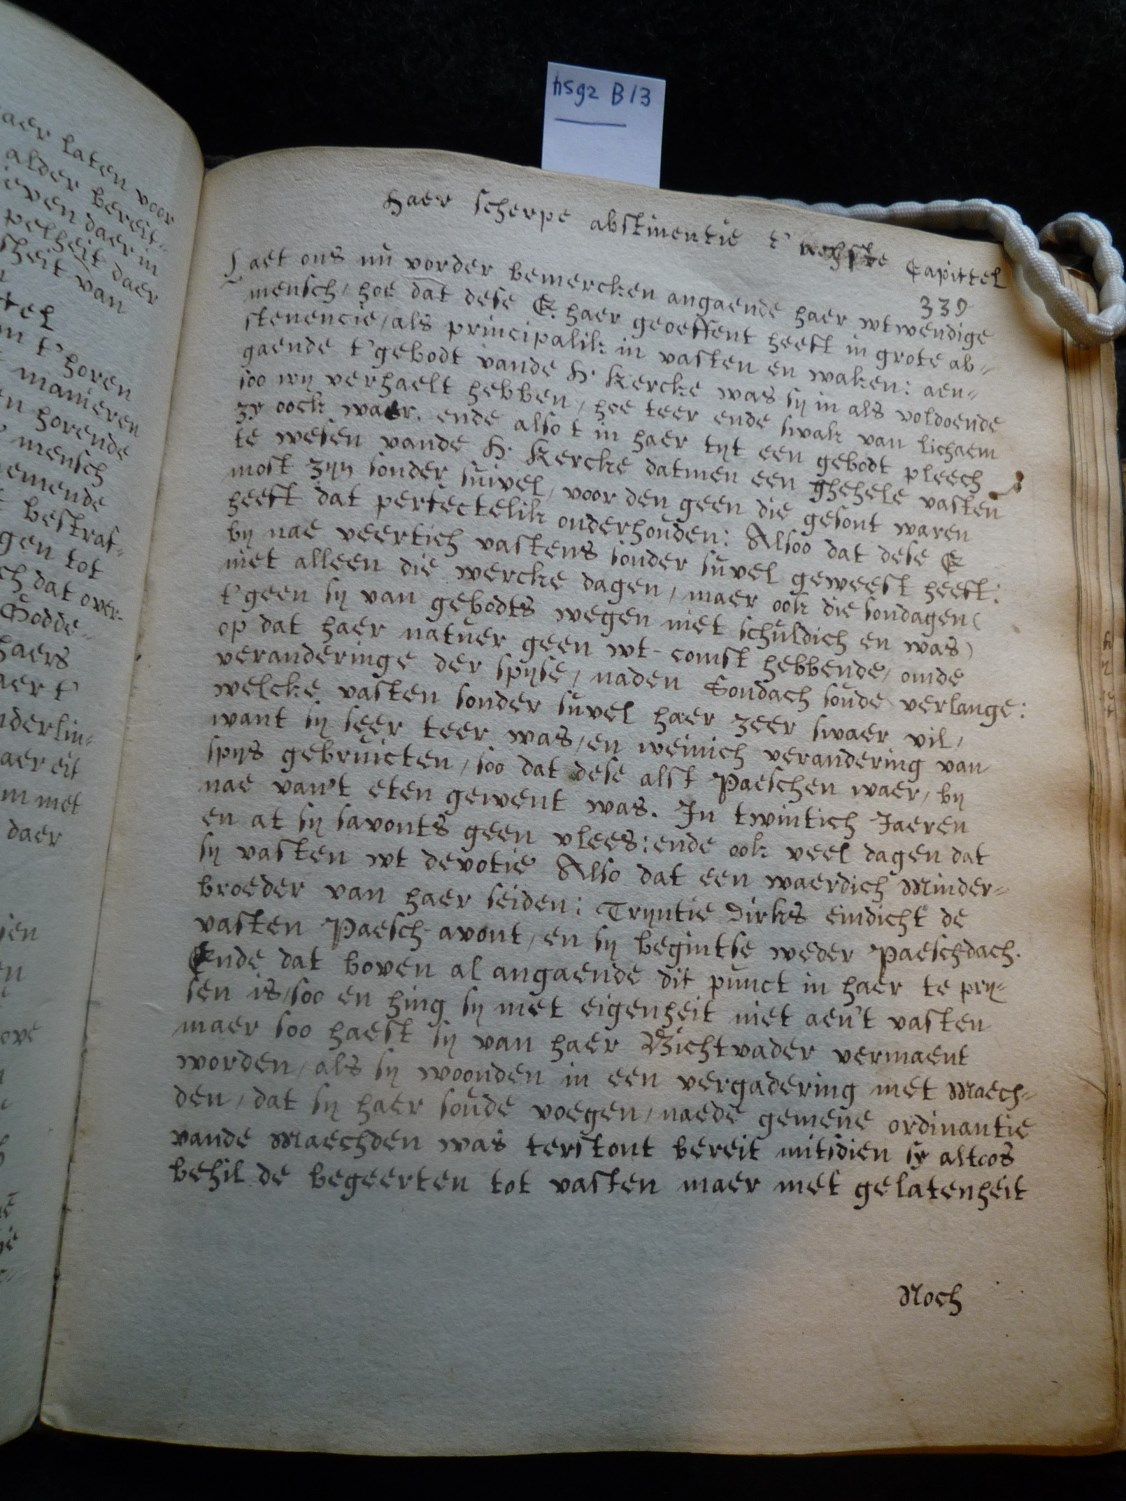 hsgz B13
Haer scherpe abstinentie t' sechste Capittel
339
Laet ons nu vorder bemercken angaende haer wtwendige
mensch / hoe dat dese E. haer geoeffent heeft in grote ab-
stenencie / als principalik in vasten en waken: aen-
gaende t'gebodt vande H. Kercke was sy in als voldoende
soo wy verhaelt hebben / hoe teer ende swak van lichaem
zy oock waer. ende also t in haer tyt een gebodt pleech
te wesen vande H. Kercke datmen een ghehele vasten
most zyn sonder suivel / voor den geen die gesont waren
heeft dat perfectelik onderhouden: Alsoo dat dese E
by nae veertich vastens sonder suvel geweest heeft:
niet alleen die wercke dagen / maer ook die sondagen (
t'geen sy van gebodts wegen niet schuldich en was)
op dat haer natuer geen wt-comst hebbende / omde
veranderinge der spyse / naden Sondach soude verlange:
welcke vasten sonder suvel haer zeer swaer vil /
want sy seer teer was / en weinich verandering van
spys gebruicten / soo dat dese alst Paeschen waer / by
nae van't eten gewent was. In twintich Jaeren
en at sy savonts geen vlees: ende ook veel dagen dat
sy vasten wt devotie Also dat een waerdich Minder-
broeder van haer seiden: Tryntie Dirks eindicht de
vasten Paesch-avont / en sy begintse weder Paeschdach.
Ende dat boven al angaende dit punct in haer te pry-
sen is / soo en hing sy met eigenheit niet aen't vasten
maer soo haest sy van haer Bichtvader vermaent
worden / als sy woonden in een vergadering met Maech-
den / dat sy haer soude voegen / naede gemene ordinantie
vande Maechden was terstont bereit mitsdien sy altoos
behil de begeerten tot vasten maer met gelatenheit
Noch